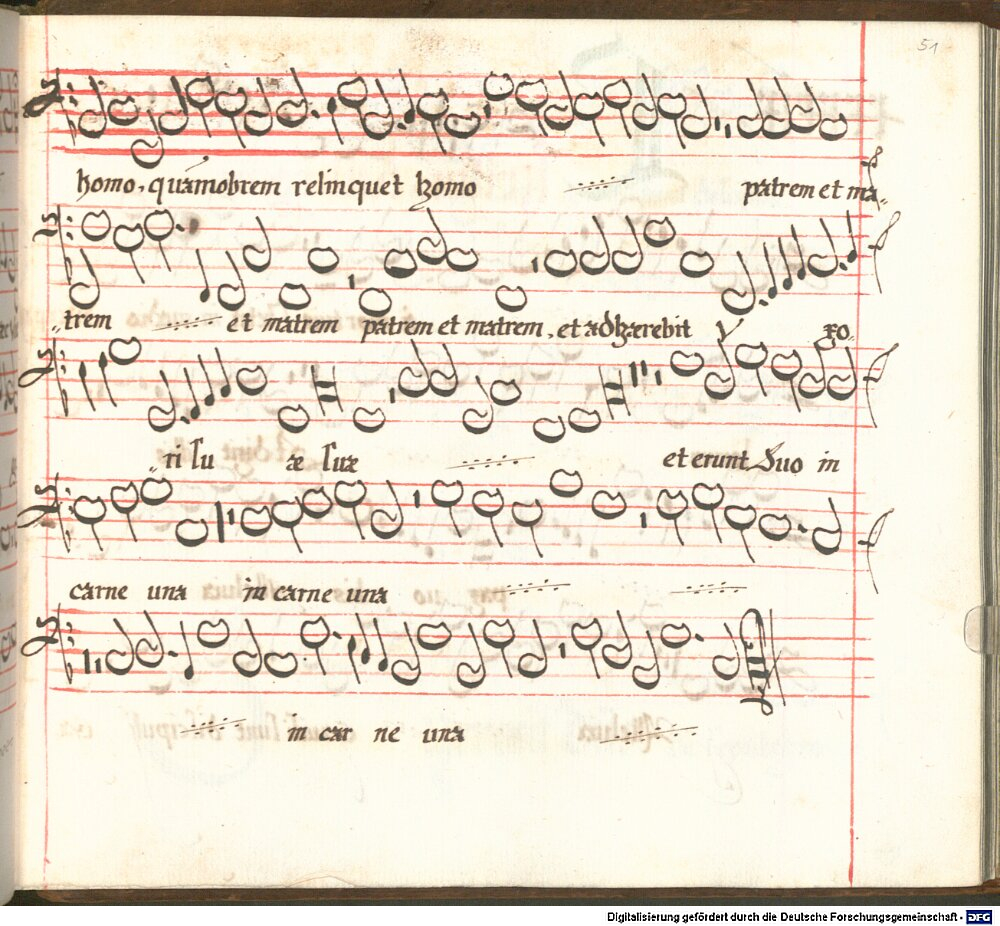 51
homo, quámobrem relinquet homo patrem et ma„
„trem et matrem patrem et matrem, et adhærebit v xo„
„ri su æ suæ et erunt duo in
carne una in carne una
in car ne una
Digitalisierung gefördert durch die Deutsche Forschungsgemeinschaft - DFG